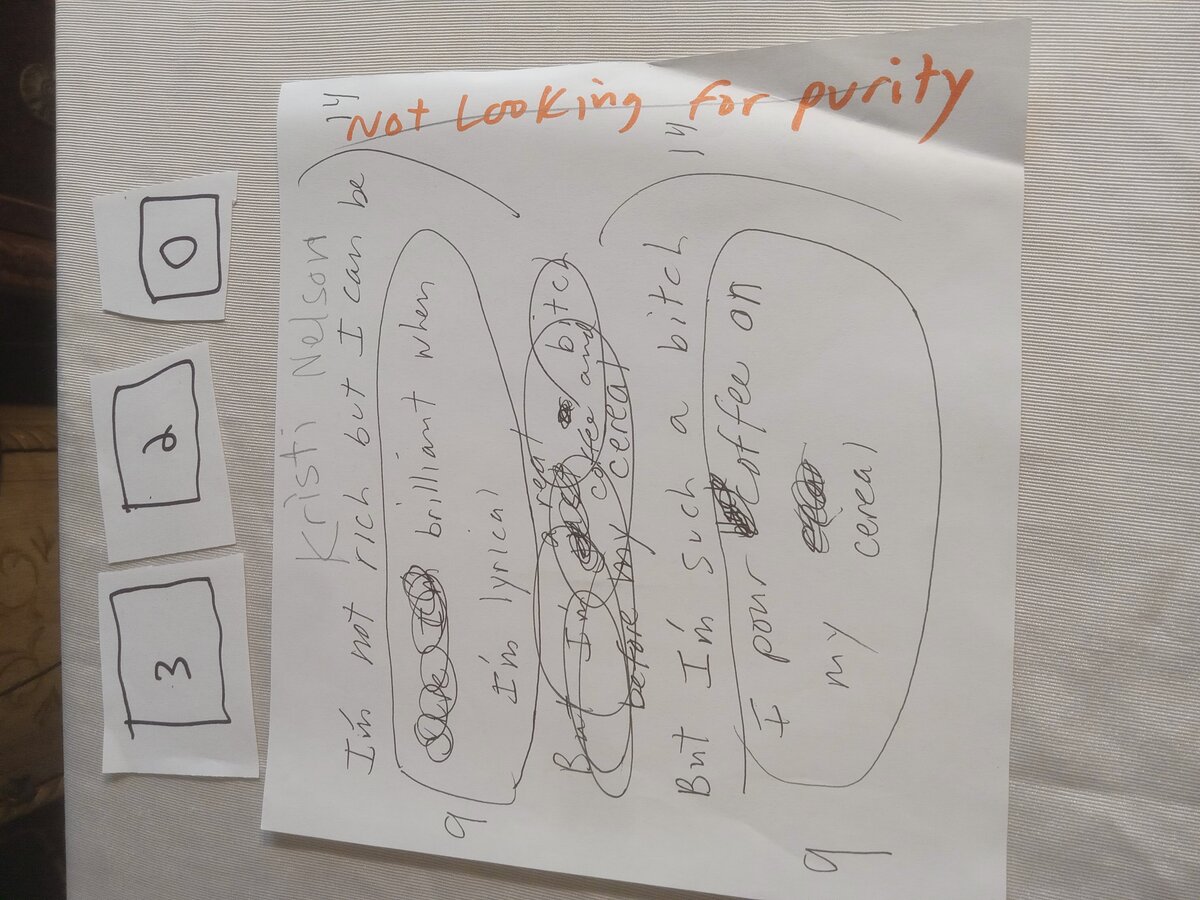 3
2
0
Kristi Nelson
14
I'm not rich but I can be
brilliant when
I'm lyrical
9
But I'm a real bitch
before my coffee and
cereal
14
But I'm such a bitch
I pour coffee on
my cereal
9
Not Looking for purity